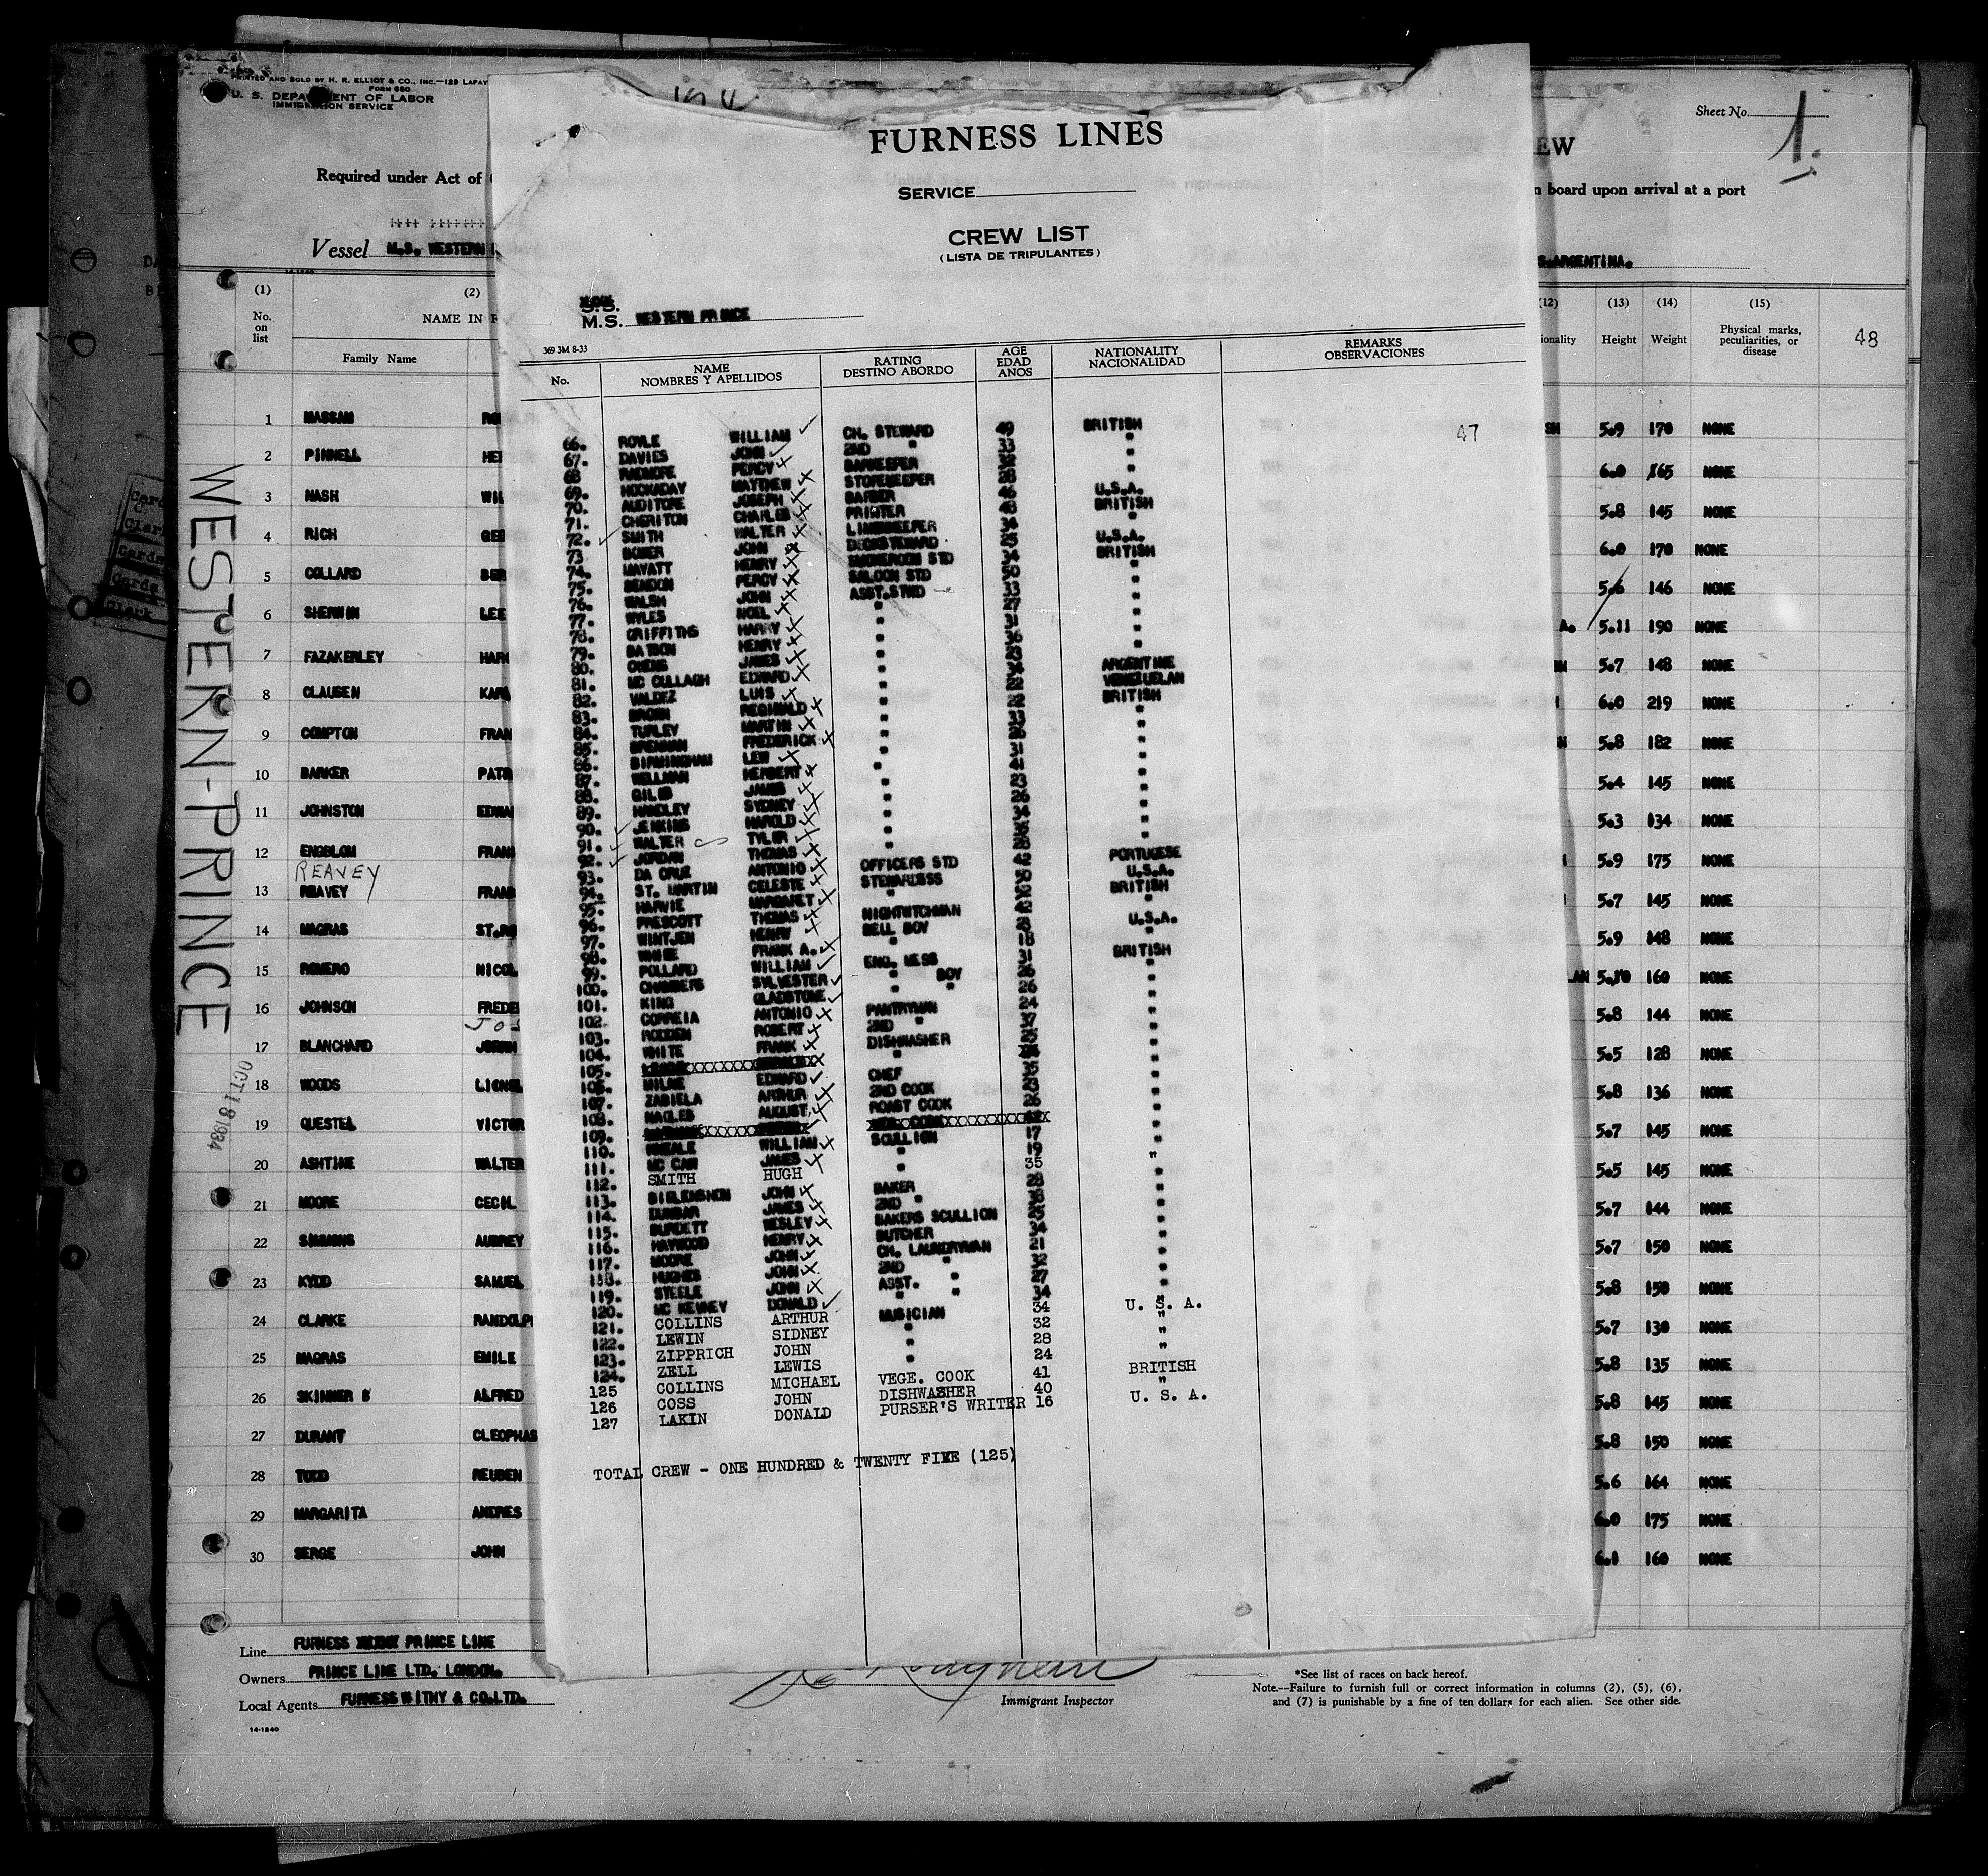 PRINTED AND SOLD BY H. R. ELLIOT & CO., INC.—129 LAFAY
FORM 680
U. S. DEPA ENT OF LABOR
IMMIGRATION SERVICE
Required under Act of
Vessel M.S. WESTERN
14-1240
(1) (2)
No. on list
NAME IN F
Family Name
1 MASSAM
2 PINNELL
3 NASH WIL
4 RICH GEO
5 COLLARD BER
6 SHERWIN LEE
7 FAZAKERLEY HAR
8 CLAUSEN KAR
9 COMPTON FRAN
10 BARKER PATR
11 JOHNSTON EDWA
12 ENGBLOM FRAN
REAVEY
13 REAVEY FRAN
14 MAGRAS ST.
15 ROMERO NICOL
16 JOHNSON FREDE
JOS
17 BLANCHARD
18 WOODS LIONEL
19 QUESTEL VICTOR
20 ASHTINE WALTER
21 MOORE CECIL
22 SIMMONS AUBREY
23 KYDD SAMUEL
24 CLARKE RANDOLPH
25 MAGRAS EMILE
26 SKINNER ALFRED
27 DURANT CLEOPHAS
28 TODD REUBEN
29 MARGARITA ANDRES
30 SERGE JOHN
Line FURNESS PRINCE LINE
Owners PRINCE LINE LTD. LONDON.
Local Agents FURNESS WITHY & CO.LTD.
14-1240
WESTERN-PRINCE
OCT 18 1934
FURNESS LINES
SERVICE
CREW LIST
(LISTA DE TRIPULANTES)
S.S.
M.S. WESTERN PRINCE
369 3M 8-33
No. NAME NOMBRES Y APELLIDOS RATING DESTINO ABORDO AGE EDAD ANOS NATIONALITY NACIONALIDAD REMARKS OBSERVACIONES
47
66. ROYLE WILLIAM CH. STEWARD 49 BRITISH
67. DAVIES JOHN 2ND " 33 "
68 PERCY BARKEEPER "
69. HOCKADAY MATTHEW STOREKEEPER 28 "
70. AUDITORE JOSEPH BARBER 46 U.S.A.
71. CHERITON CHARLES PRINTER 48 BRITISH
72. SMITH WALTER LINENKEEPER 34 "
73 JOHN DECKSTEWARD 25 U.S.A.
74. HENRY SMOKEROOM STD 34 BRITISH
75. PERCY SALOON STD 50 "
76. WALSH JOHN ASST.STWD 33 "
77. WYLES NOEL " 27 "
78. GRIFFITHS HARRY " 31 "
79. BATSON HENRY " 36 "
80. OWENS JAMES " 23 "
81. MC CULLAGH EDWARD " ARGENTINE
82. VALDEZ LUIS " 22 VENEZUELAN
83. BROWN REGINALD " 22 BRITISH
84. TURLEY MARTIN " 33 "
85. BRENNAN FREDERICK " "
86. BIRMINGHAM LEW " 31 "
87. WELLMAN HERBERT " 41 "
88. JAMES " 23 "
89. HANDLEY SYDNEY " 26 "
90. JENKINS HAROLD " 34 "
91. WALTER TYLER " "
92. JORDAN THOMAS " 28 "
93. DA CRUZ ANTONIO OFFICERS STD 42 PORTUGESE
94. ST. MARTIN CELESTE STEWARDESS 50 U.S.A.
95. HARVIE MARGARET " BRITISH
96. PRESCOTT THOMAS NIGHTWTCHMAN 42 "
97. WINTJEN HENRY BELL BOY U.S.A.
98. WHITE FRANK A. " 18 "
99. POLLARD WILLIAM ENG. MESS 31 BRITISH
100. CHAMBERS SYLVESTER " BOY 26 "
101. KING GLADSTONE " " 26 "
102 CORREIA ANTONIO PANTRYMAN 24 "
103. RODDEN ROBERT 2ND " 37 "
104. WHITE FRANK DISHWASHER 25 "
105.
106. MILNE EDWARD CHEF 35 "
107. ZABIELA ARTHUR 2ND COOK 23 "
108. NAGLES AUGUST ROAST COOK 26 "
109.
110. WILLIAM SCULLION 17 "
111. MC CAW JAMES " 19 "
112. SMITH HUGH " 35 "
113. JOHN BAKER 28 "
114. DUNBAR JAMES 2ND " "
115. BURDETT WESLEY BAKERS SCULLION 25 "
116. HAYWOOD HENRY BUTCHER 34 "
117. MOORE JOHN CH. LAUNDRYMAN 21 "
118. HUGHES JOHN 2ND " 32 "
119. STEELE JOHN ASST. " 27 "
120. MC KEWEY DONALD " " 34 "
121. COLLINS ARTHUR MUSICIAN 34 U. S. A.
122. LEWIN SIDNEY " 32 "
123. ZIPPRICH JOHN " 28 "
124. ZELL LEWIS " 24 "
125 COLLINS MICHAEL VEGE. COOK 41 BRITISH
126 COSS JOHN DISHWASHER 40 "
127 LAKIN DONALD PURSER'S WRITER 16 U. S. A.
TOTAL CREW - ONE HUNDRED & TWENTY FIVE (125)
Immigrant Inspector
Sheet No. 1.
EW
n board upon arrival at a port
S.ARGENTINA.
(12) (13) (14) (15)
ionality Height Weight Physical marks, peculiarities, or disease
48
SH 5.9 170 NONE
6.0 165 NONE
5.8 145 NONE
6.0 170 NONE
5.6 146 NONE
A. 5.11 190 NONE
5.7 148 NONE
6.0 219 NONE
5.8 182 NONE
5.4 145 NONE
5.3 134 NONE
5.9 175 NONE
5.7 145 NONE
5.9 148 NONE
LAN 5.10 160 NONE
5.8 144 NONE
5.5 128 NONE
5.8 136 NONE
5.7 145 NONE
5.5 145 NONE
5.7 144 NONE
5.7 150 NONE
5.8 150 NONE
5.7 130 NONE
5.8 135 NONE
5.8 145 NONE
5.8 150 NONE
5.6 164 NONE
6.0 175 NONE
6.1 160 NONE
*See list of races on back hereof.
Note.—Failure to furnish full or correct information in columns (2), (5), (6),
and (7) is punishable by a fine of ten dollars for each alien. See other side.